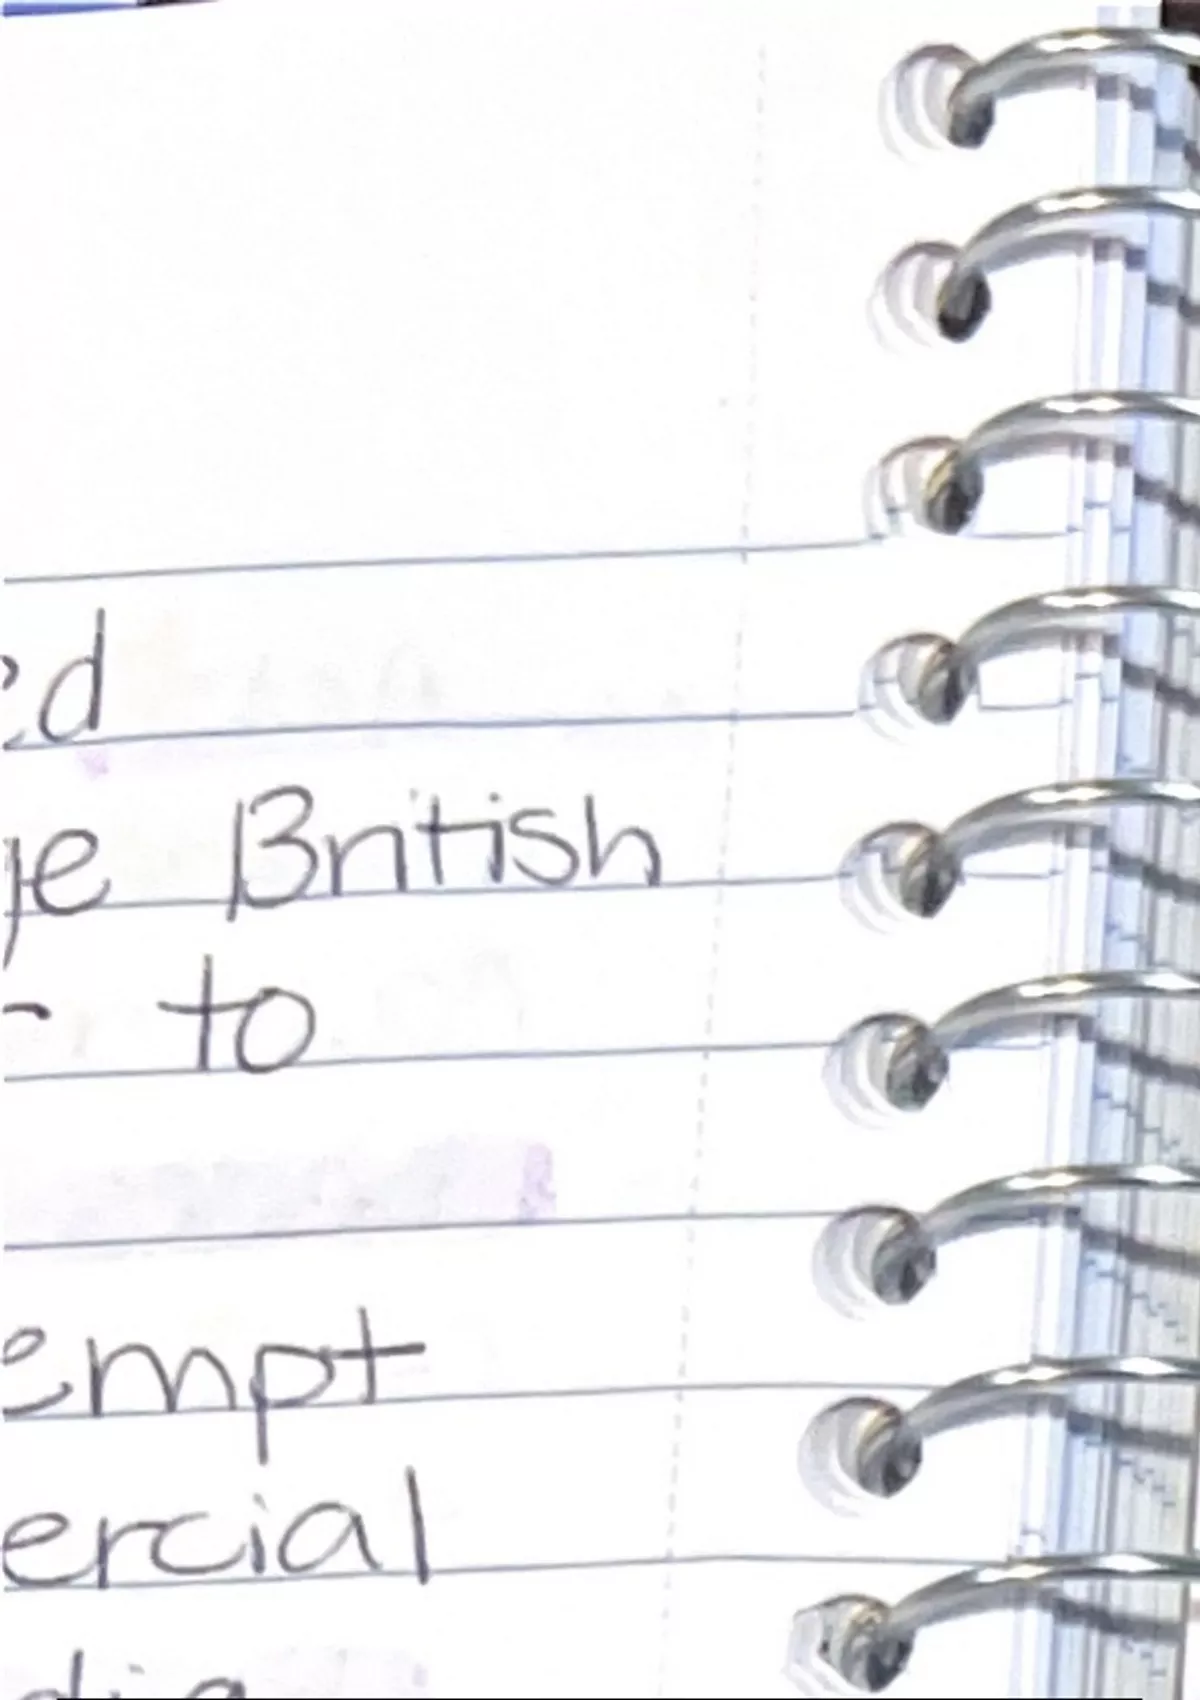 ed
ge British
- to
empt
ercial
dia